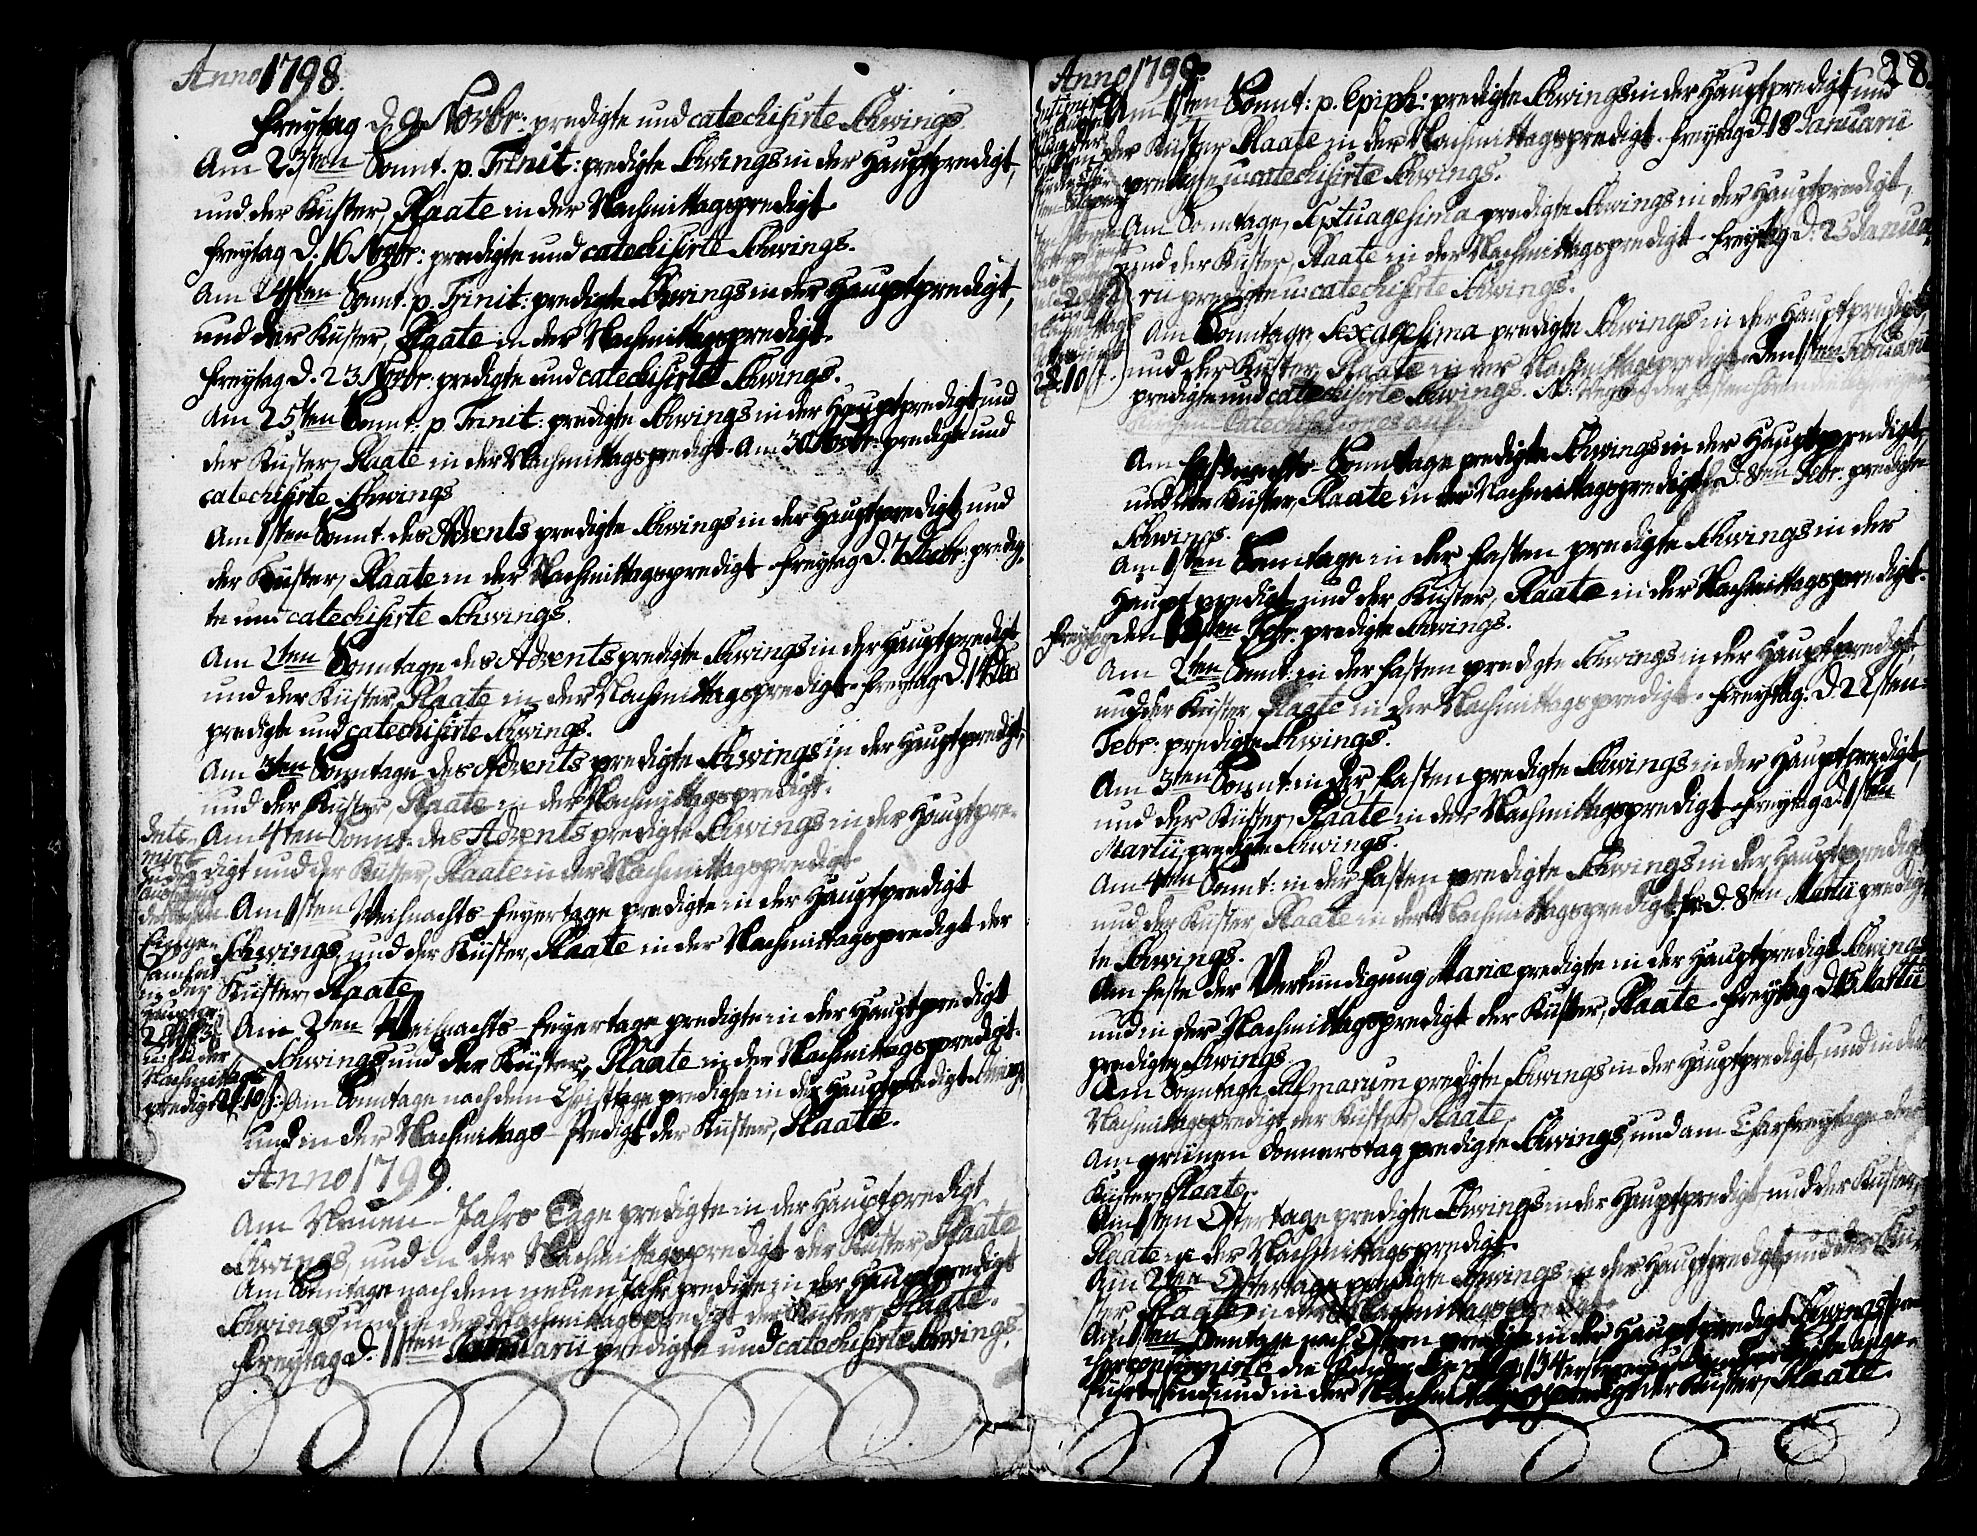 Anno 1798.
Freytag d. 9 Novbr: predigte und catechisirte Schwings.
Am 23sten Sonnt. p. Trinit: predigte Schwings in der Hauptpredigt,
und der Küster, Staate in der Nachmittagspredigt.
Freytag d. 16 Novbr: predigte und catechisirte Schwings.
Am 24sten Sonnt. p. Trinit: predigte Schwings in der Hauptpredigt,
und der Küster, Staate in der Nachmittagspredigt.
Freytag d. 23 Novbr: predigte und catechisirte Schwings.
Am 25sten Sonnt: p Trinit: predigte Schwings in der Hauptpredigt und
der Küster, Staate in der Nachmittagspredigt. Am 30 Novbr: predigte und
catechisirte Schwings
Am 1sten Sonnt. des Advents predigte Schwings in der Hauptpredigt und
der Küster, Staate in der Nachmittagspredigt. Freytag d. 7 Decbr: predig-
te und catechisirte Schwings.
Am 2ten Sonntage des Advents predigte Schwings in der Hauptpredigt
und der Küster, Staate in der Nachmittagspredigt. Freytag d. 14 Dec
predigte und catechisirte Schwings.
Am 3ten Sonntage des Advents predigte Schwings in der Hauptpredigt,
und der Küster, Staate in der Nachmittagspredigt.
Am 4ten Sonnt. des Advents predigte Schwings in der Hauptpre-
digt und der Küster, Staate in der Nachmittagspredigt
Am 1sten Weihnachts-Feyertage predigte in der Hauptpredigt
Schwings, und der Küster, Staate in der Nachmittagspredigt der
Küster, Staate
Am 2ten Weihnachts-Feyertage predigte in der Hauptpredigt
Schwings und der Küster, Staate in der Nachmittagspredigt.
Am Sonntage nach dem Christtage predigte in der Hauptpredigt Schwings,
und in der Nachmittags-Predigt der Küster, Staate.
in der
Nachmittags
predigt
Anno 1799.
Am Neuen-Jahrs Tage predigte in der Hauptpredigt
Schwings, und in der Nachmittagspredigt der Küster, Staate
Am Sonntage nach dem neuen Jahr predigte in der Hauptpredigt
Schwings und in der Nachmittagspredigt der Küster, Staate.
Freytag d. 11ten Januarii predigte und catechisirte Schwings.
Anno 1799.
28
Am 1sten Sonnt: p. Epiph: predigte Schwings in der Hauptpredigt und
der Küster, Staate in der Nachmittagspredigt. Freytag d. 18 Januarii
predigte u: catechisirte Schwings.
Am Sonntage, Septuagesima predigte Schwings in der Hauptpredigt,
und der Küster, Staate in der Nachmittagspredigt. Freytag d. 25 Janua-
rii predigte u: catechisirte Schwings.
Am Sonntage Sexagesima predigte Schwings in der Hauptpredigt
und der Küster, Staate in der Nachmittagspredigt. Den 1sten Februarii
predigte und catechisirte Schwings. NB: Wegen der Fasten hören die bisherigen
Kirchen-Catechisationes auf.
Am Fastnachts-Sonntage predigte Schwings in der Hauptpredigt,
und der Küster, Staate in der Nachmittagspredigt. d. 8ten Febr: predigte
Schwings.
Am 1sten Sonntage in der Fasten predigte Schwings in der
Hauptpredigt und der Küster, Staate in der Nachmittagspredigt.
Freytag den 15ten Febr. predigte Schwings.
Am 2ten Sonnt: in der Fasten predigte Schwings in der Hauptpredigt,
und der Küster, Staate in der Nachmittagspredigt. Freytag. d. 22sten
Febr: predigte Schwings.
Am 3ten Sonnt: in der Fasten predigte Schwings in der Hauptpredigt,
und der Küster, Staate in der Nachmittagspredigt. Freytag d. 1sten
Martii predigte Schwings.
Am 4ten Sonnt: in der Fasten predigte Schwings in der Hauptpredigt
und der Küster, Staate in der Nachmittagspredigt. fr: d. 8ten Martii predig-
te Schwings.
Am Feste der Verkündigung Mariæ predigte in der Hauptpredigt Schwings
und in der Nachmittagspredigt der Küster, Staate. Freytag d. 15 Martii
predigte Schwings
Am Sonntage, Palmarum predigte Schwings in der Hauptpredigt, und in der
Nachmittagspredigt der Küster, Staate.
Am grünen Donnerstag predigte Schwings, und am Charfreytage der
Küster, Staate.
Am 1sten Ostertage predigte Schwings in der Hauptpredigt und der Küster,
Staate in der Nachmittagspredigt.
Am 2ten Ostertage predigte Schwings in der Hauptpredigt, und der Küs-
ter, Staate in der Nachmittagspredigt
Am 1sten Sonntage nach Ostern predigte in der Hauptpredigt Schwings
die
führt sind, und in der Nachmittagspredigt der Küster, Staate.